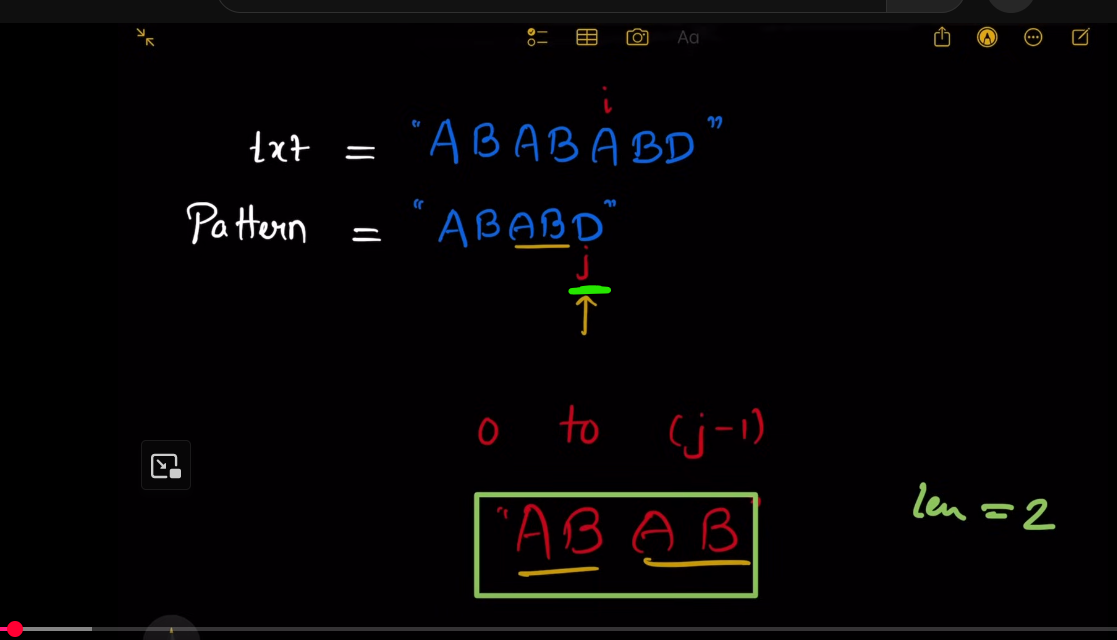 Aa
i
txt = "ABABABD"
Pattern = "ABABD"
j
0 to (j-1)
"AB AB"
len = 2